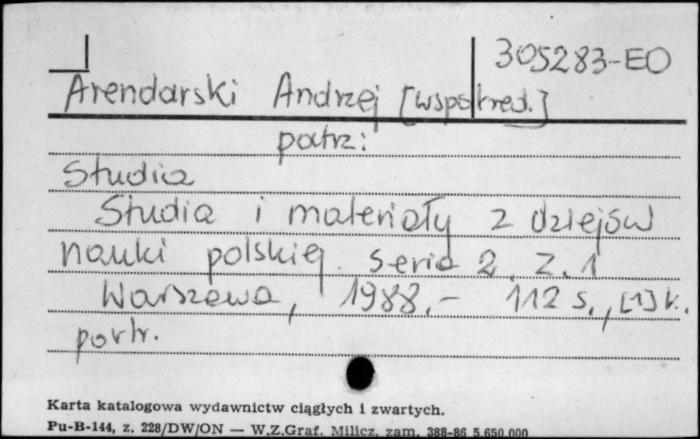 305283-EO
Arendarski Andrzej [współred.]
patrz:
Studia
Studia i materiały z dziejów
nauki polskiej. Seria 2. Z. 1
Warszawa, 1988.- 112 s., [1] k.
portr.
Karta katalogowa wydawnictw ciągłych i zwartych.
Pu-B-144, z. 228/DW/ON — W.Z.Graf. Milicz, zam. 388-86 5.650.000